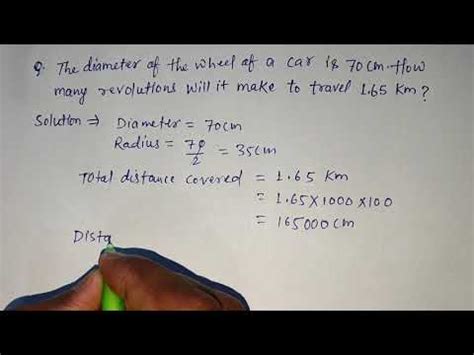 Q. The diameter of the wheel of a car is 70cm. How
many revolutions will it make to travel 1.65 Km?
Solution ⇒ Diameter = 70cm
Radius = 70/2 = 35cm
Total distance covered = 1.65 Km
= 1.65×1000×100
= 165000cm
Dista